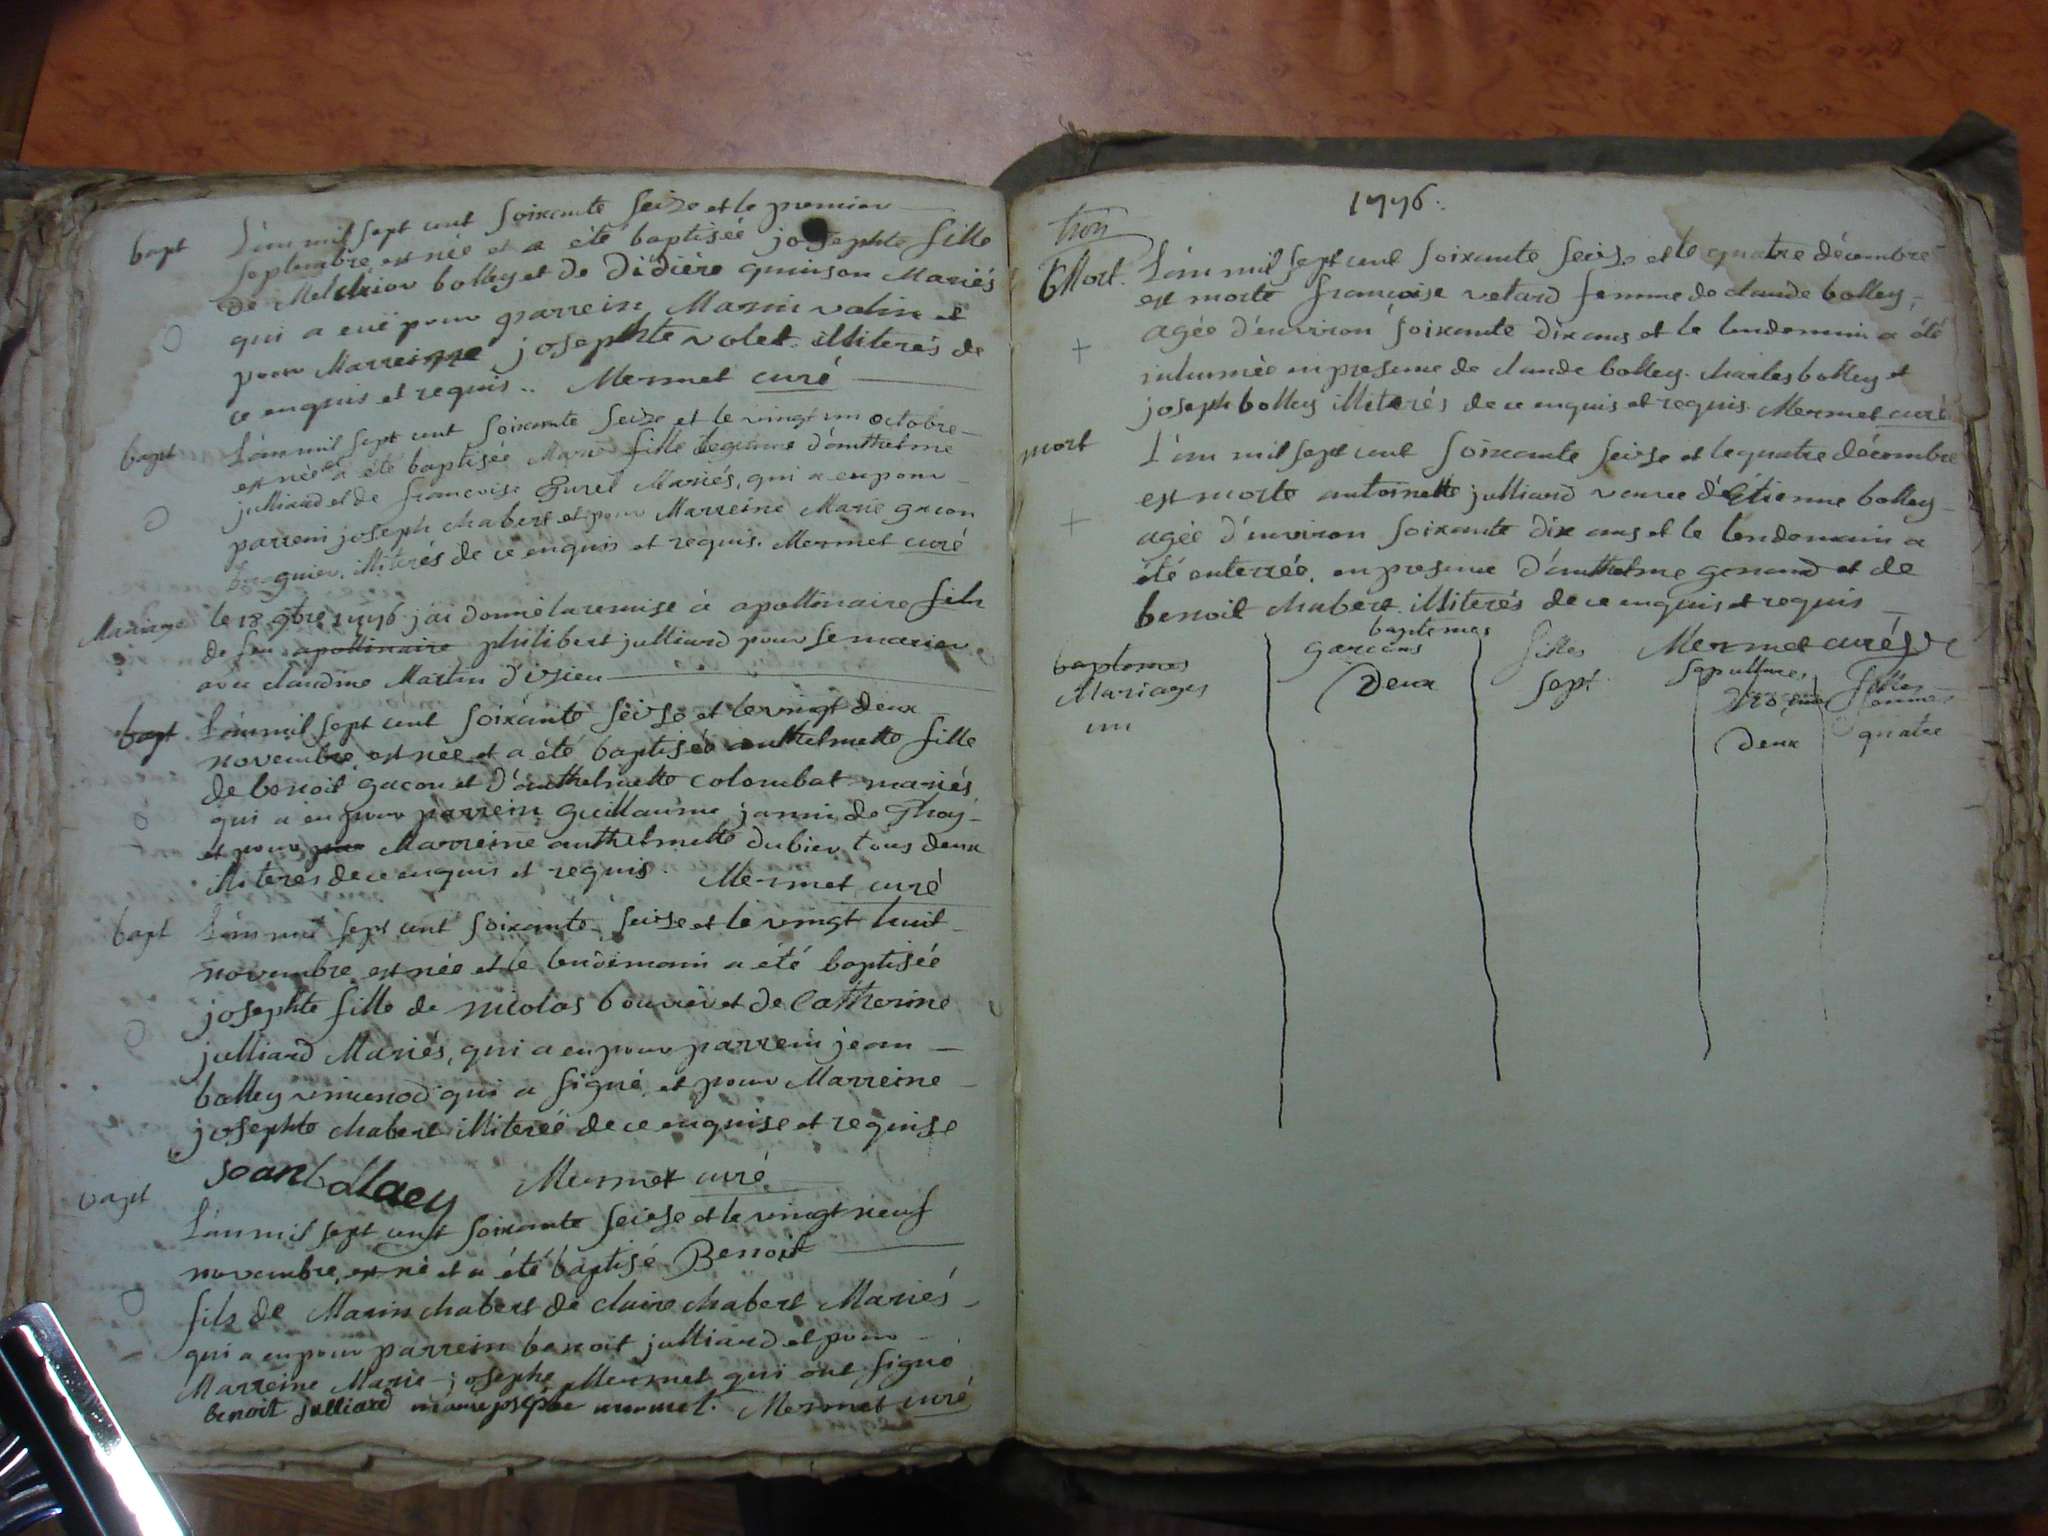 bapt L'an mil sept cent soixante seize et le premier
septembre est née et a été baptisée josephte fille
de Melchior bolley et de didière quinson Mariés
qui a euë pour parrein Marin volin et
pour Marreine josephte volet illiterés de
ce enquis et requis .. Mermet curé
bapt L'an mil sept cent soixante seize et le vingt un octobre
est née et a été baptisée Marie fille legitime d'anthelme
julliard et de francoise Mariés, qui a eu pour
parrein joseph chabert et pour Marreine Marie gacon
illiterés de ce enquis et requis. Mermet curé
Mariage le 18 9bre 1776 j'ai donné la remise à apollinaire fils
de feu apollinaire philibert julliard pour se marier
avec claudine Martin d'izieu
bapt L'an mil sept cent soixante seize et le vingt deux
novembre est née et a été baptisée anthelmette fille
de benoit gacon et d'anthelmette colombat mariés
qui a eu pour parrein guillaume janin de
et pour pour Marreine anthelmette dubier tous deux
illiterés de ce enquis et requis. Mermet curé
bapt L'an mil sept cent soixante seize et le vingt huit
novembre est née et le lendemain a été baptisée
josephte fille de nicolas bouvier et de Catherine
julliard Mariés, qui a eu pour parrein jean
bolley vuienod qui a signé et pour Marreine
josephte chabert illiterée de ce enquise et requise
Mermet curé
bapt L'an mil sept cent soixante seize et le vingt neuf
novembre est né et a été baptisé Benoit
fils de Marin chabert de claire chabert Mariés
qui a eu pour parrein benoit julliard et pour
Marreine Marie josephe Mermet qui ont signé
benoit julliard marie josephe mermet. Mermet curé
1776.
Mort. L'an mil sept cent soixante seize et le quatre décembre
est morte francoise vetard femme de claude bolley,
agée d'environ soixante dix ans et le lendemain a été
inhumée en presence de claude bolley. charles bolley et
joseph bolley illiterés de ce enquis et requis. Mermet curé
mort L'an mil sept cent soixante seize et le quatre décembre
est morte antoinette julliard veuve d'Etienne bolley
agée d'environ soixante dix ans et le lendemain a
été enterrée, en presence d'anthelme genand et de
benoit chabert illiterés de ce enquis et requis
Mermet curé
baptemes
baptemes garcons filles sepultures
Mariages deux sept filles
un deux quatre